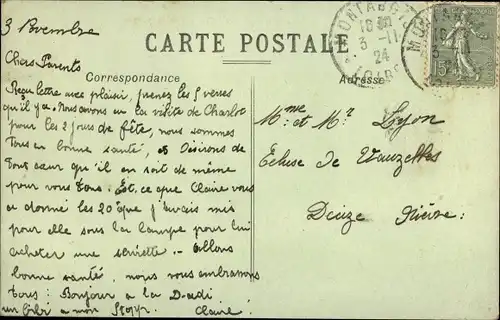 3 Novembre
CARTE POSTALE
Correspondance
Adresse
MONTARGIS
18
3 -11
24
LOIRET
15c
Chers Parents
Reçu lettre avec plaisir, prenez les 5 verses
qu'il y a. Nous avons eu la visite de Charlot
pour les 2 jours de fête, nous sommes
tous en bonne santé, et désirons de
tout cœur qu'il en soit de même
pour vous tous. Est ce que Claire vous
a donné les 20 que j'avais mis
pour elle sous la lampe pour lui
acheter une serviette. allons
bonne santé, nous vous embrassons
tous : Bonjour a la Dadi
a mon Claire
Mme et Mr Lyon
Ecluse de Vauzelles
Decize Nièvre